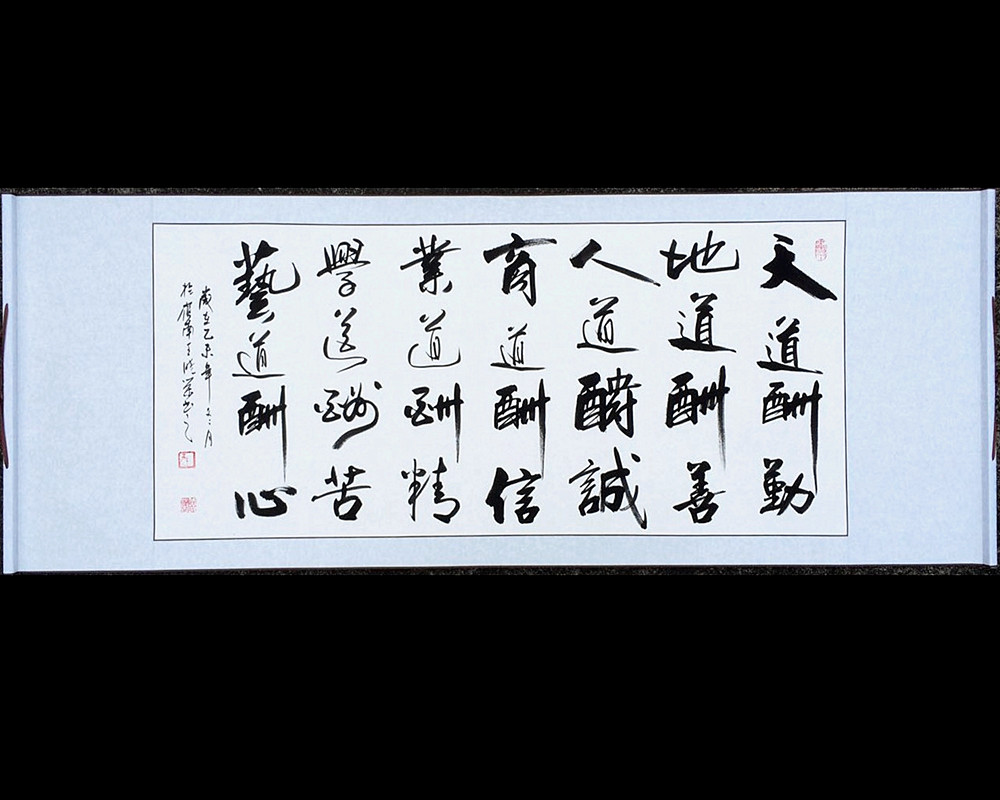 天道酬勤
地道酬善
人道酬誠
商道酬信
業道酬精
學道酬苦
藝道酬心
歲在乙未年